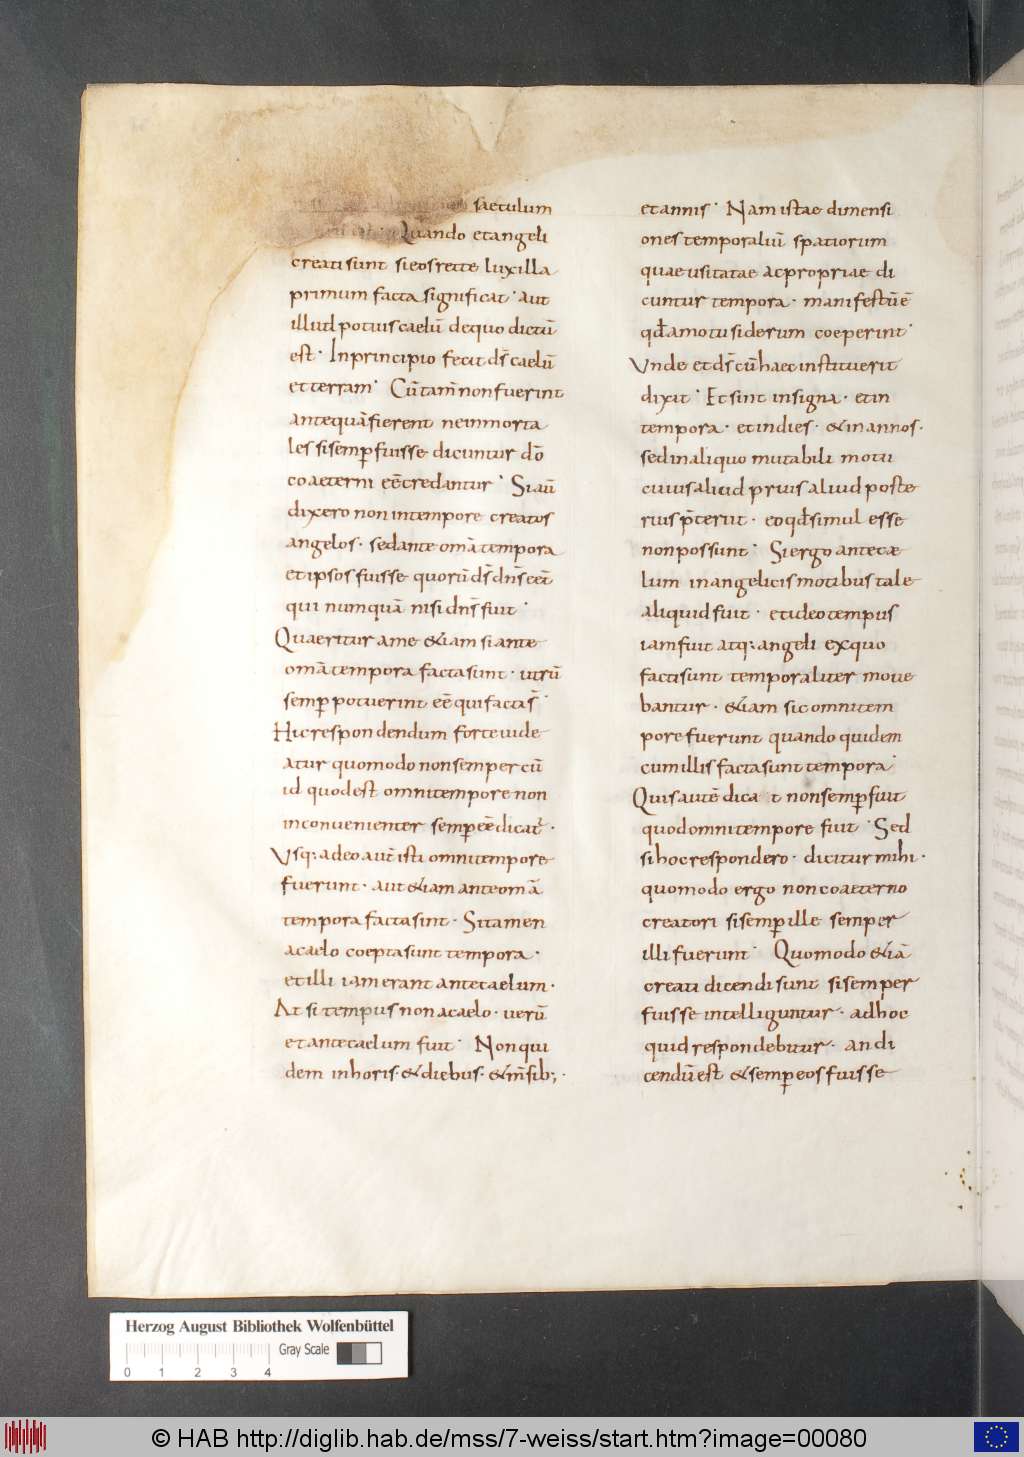 saeculum
Quando et angeli
creati sunt si eos recte lux illa
primum facta significat · aut
illud potuis caelū de quo dictū
est · In principio fecit ds̄ caelū
et terram · Cū tam̄ non fuerint
antequā fierent ne inmorta
les si semp̄ fuisse dicuntur dō
coaeterni eē credantur · Si aū
dixero non in tempore creatos
angelos · sed ante om̄a tempora
et ipsos fuisse quorū ds̄ dn̄s eēt
qui numquā nisi dn̄s fuit ·
Quaeritur a me &iam si ante
om̄a tempora facta sunt · utrū
semp̄ potuerint eē qui facti s̄ ·
Hic respondendum forte uide
atur quomodo non semper cū
id quod est omni tempore non
inconuenienter semp̄ eē dicat̄ ·
Usq: adeo aut̄ isti omni tempore
fuerunt · aut &iam ante om̄a
tempora facta sint · Si tamen
a caelo coepta sunt tempora ·
et illi iam erant ante caelum ·
At si tempus non a caelo · uerū
et ante caelum fuit · Non qui
dem in horis · & diebus · & m̄sib; ·
et annis · Nam istae dimensi
ones temporaliū spatiorum
quae usitatae ac propriae di
cuntur tempora · manifestū ē
qđ a motu siderum coeperint ·
Unde et ds̄ cū haec institueret
dixit · Et sint in signa · et in
tempora · et in dies · & in annos ·
sed in aliquo mutabili motu
cuius aliud prius aliud poste
rius p̄terit · eo qđ simul esse
non possunt · Si ergo ante cae
lum in angelicis motibus tale
aliquid fuit · et ideo tempus
iam fuit atq: angeli ex quo
facti sunt temporaliter moue
bantur · &iam sic omni tem
pore fuerunt quando quidem
cum illis facta sunt tempora ·
Quis autē dicat non semp̄ fuit
quod omni tempore fuit · Sed
si hoc respondero · dicitur mihi ·
quomodo ergo non coaeterno
creatori si semp̄ ille semper
illi fuerunt · Quomodo &iā
creati dicendi sunt si semper
fuisse intelliguntur · ad hoc
quid respondebitur · an di
cendū est & semper eos fuisse
Herzog August Bibliothek Wolfenbüttel
Gray Scale
0 1 2 3 4
© HAB http://diglib.hab.de/mss/7-weiss/start.htm?image=00080